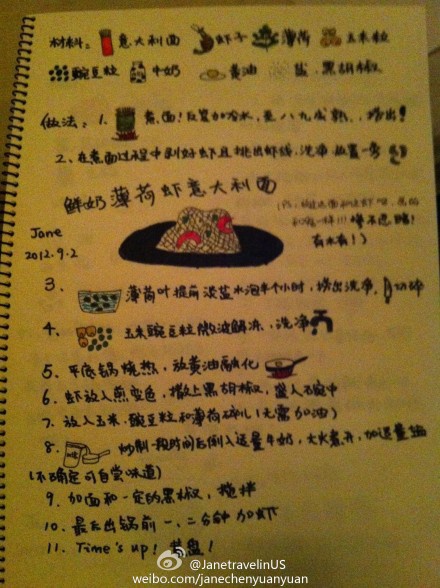 材料: 意大利面 虾子 薄荷 玉米粒
豌豆粒 牛奶 黄油 盐.黑胡椒
做法: 1. 煮面!反复加冷水,至八九成熟,捞出!
2. 在煮面过程中剥好虾且挑出虾线,洗净放置一旁
鲜奶薄荷虾意大利面
Jane
2012.9.2
有木有!)
3. 薄荷叶提前淡盐水泡半个小时,捞出洗净,切碎
4. 玉米豌豆粒微波解冻,洗净
5. 平底锅烧热,放黄油融化
6. 虾放入煎变色,撒上黑胡椒,盛入碗中
7. 放入玉米.豌豆粒和薄荷碎儿(无需加油)
8. 炒制一段时间后倒入适量牛奶,大火煮开,加适量盐
(不确定可自尝味道)
9. 加面和一定的黑椒,搅拌
10. 最后出锅前一、二分钟加虾
11. Time's up! 装盘!
@JanetravelinUS
weibo.com/janechenyuanyuan